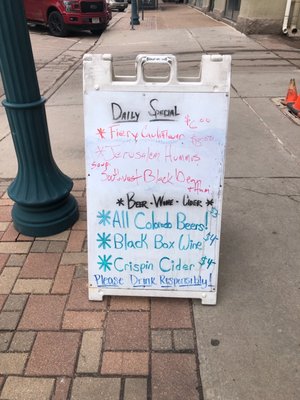 Daily Special
* Fiery Cauliflower
* Jerusalem Hummis
Soup
Southwest Black Bean
+ Ham
* Beer - Wine - Cider *
* All Colorado Beers! $3
* Black Box Wine $4
* Crispin Cider $4
Please Drink Responsibly!